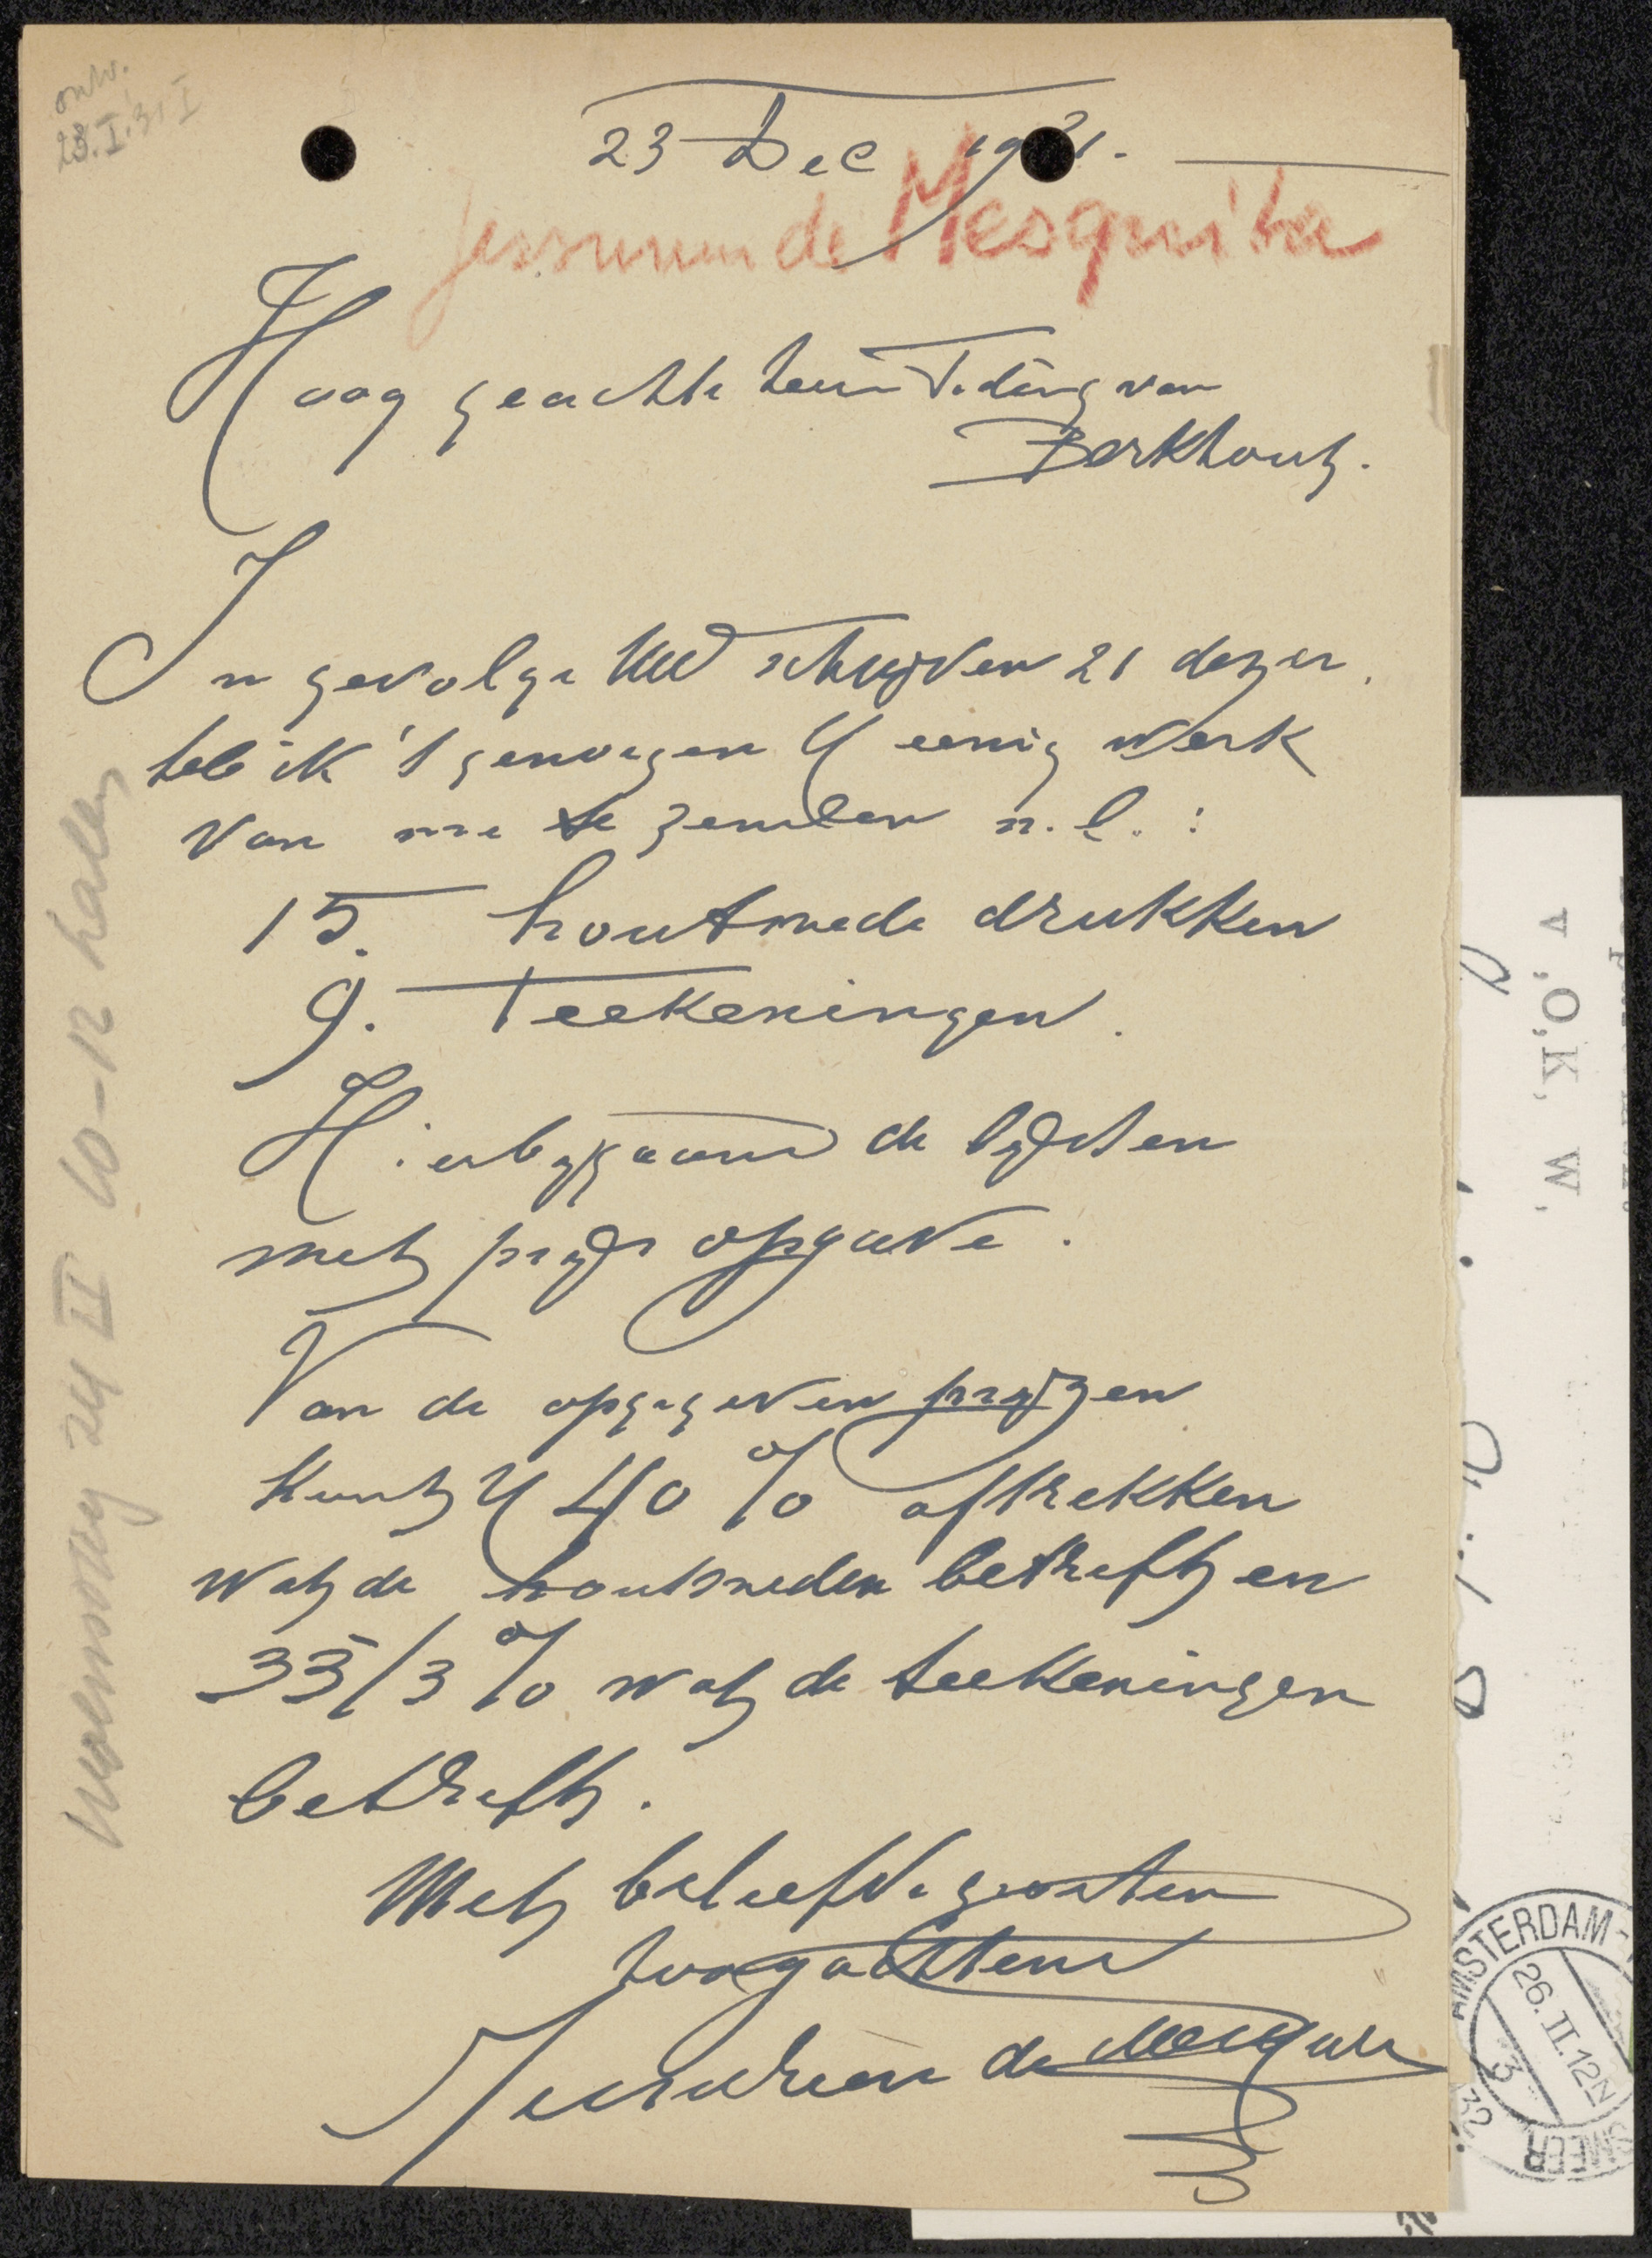 ontv.
23.I.31 I
23 Dec 1931.
Jessurun de Mesquita
Hoog geachte heer Teding van
Berkhout.
In gevolge Uw schrijven 21 dezer,
heb ik 't genoegen U eenig werk
van me te zenden n.l. :
15. houtsnede drukken
9. Teekeningen.
Hierbijgaand de lijsten
met prijs opgave.
Van de opgegeven prijzen
kunt U 40 % aftrekken
wat de houtsneden betreft en
33 1/3 % wat de teekeningen
betreft.
Met beleefde groeten
hoogachtend
Jessurun de Mesquita
Woensdag 24 II 10-12 halen
V.O.K. W.
AMSTERDAM
26.II.12N
3
32